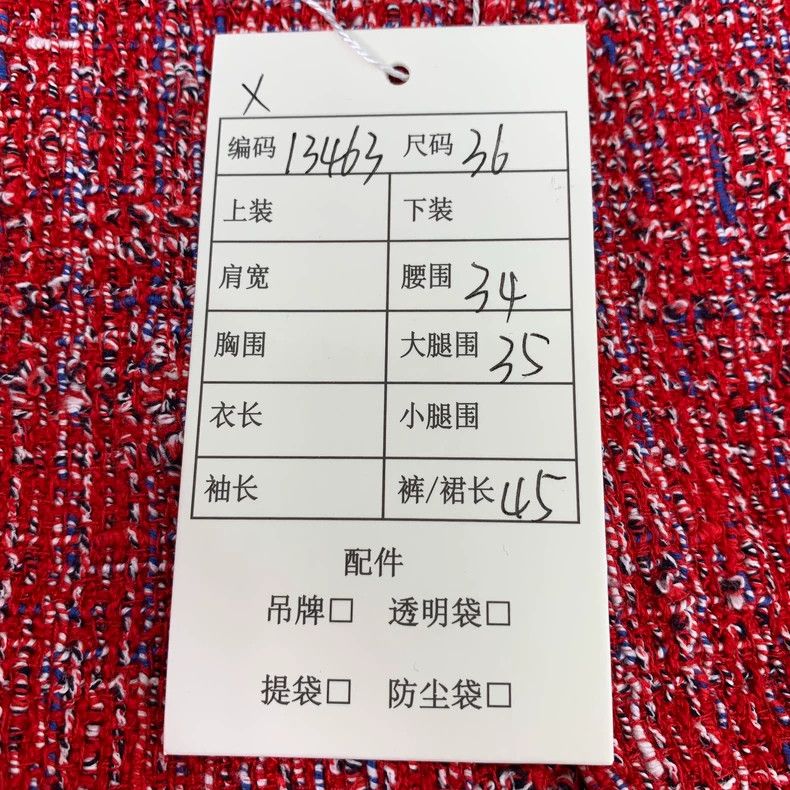 X
编码 13463 尺码 36
上装 下装
肩宽 腰围 34
胸围 大腿围 35
衣长 小腿围
袖长 裤/裙长 45
配件
吊牌□ 透明袋□
提袋□ 防尘袋□